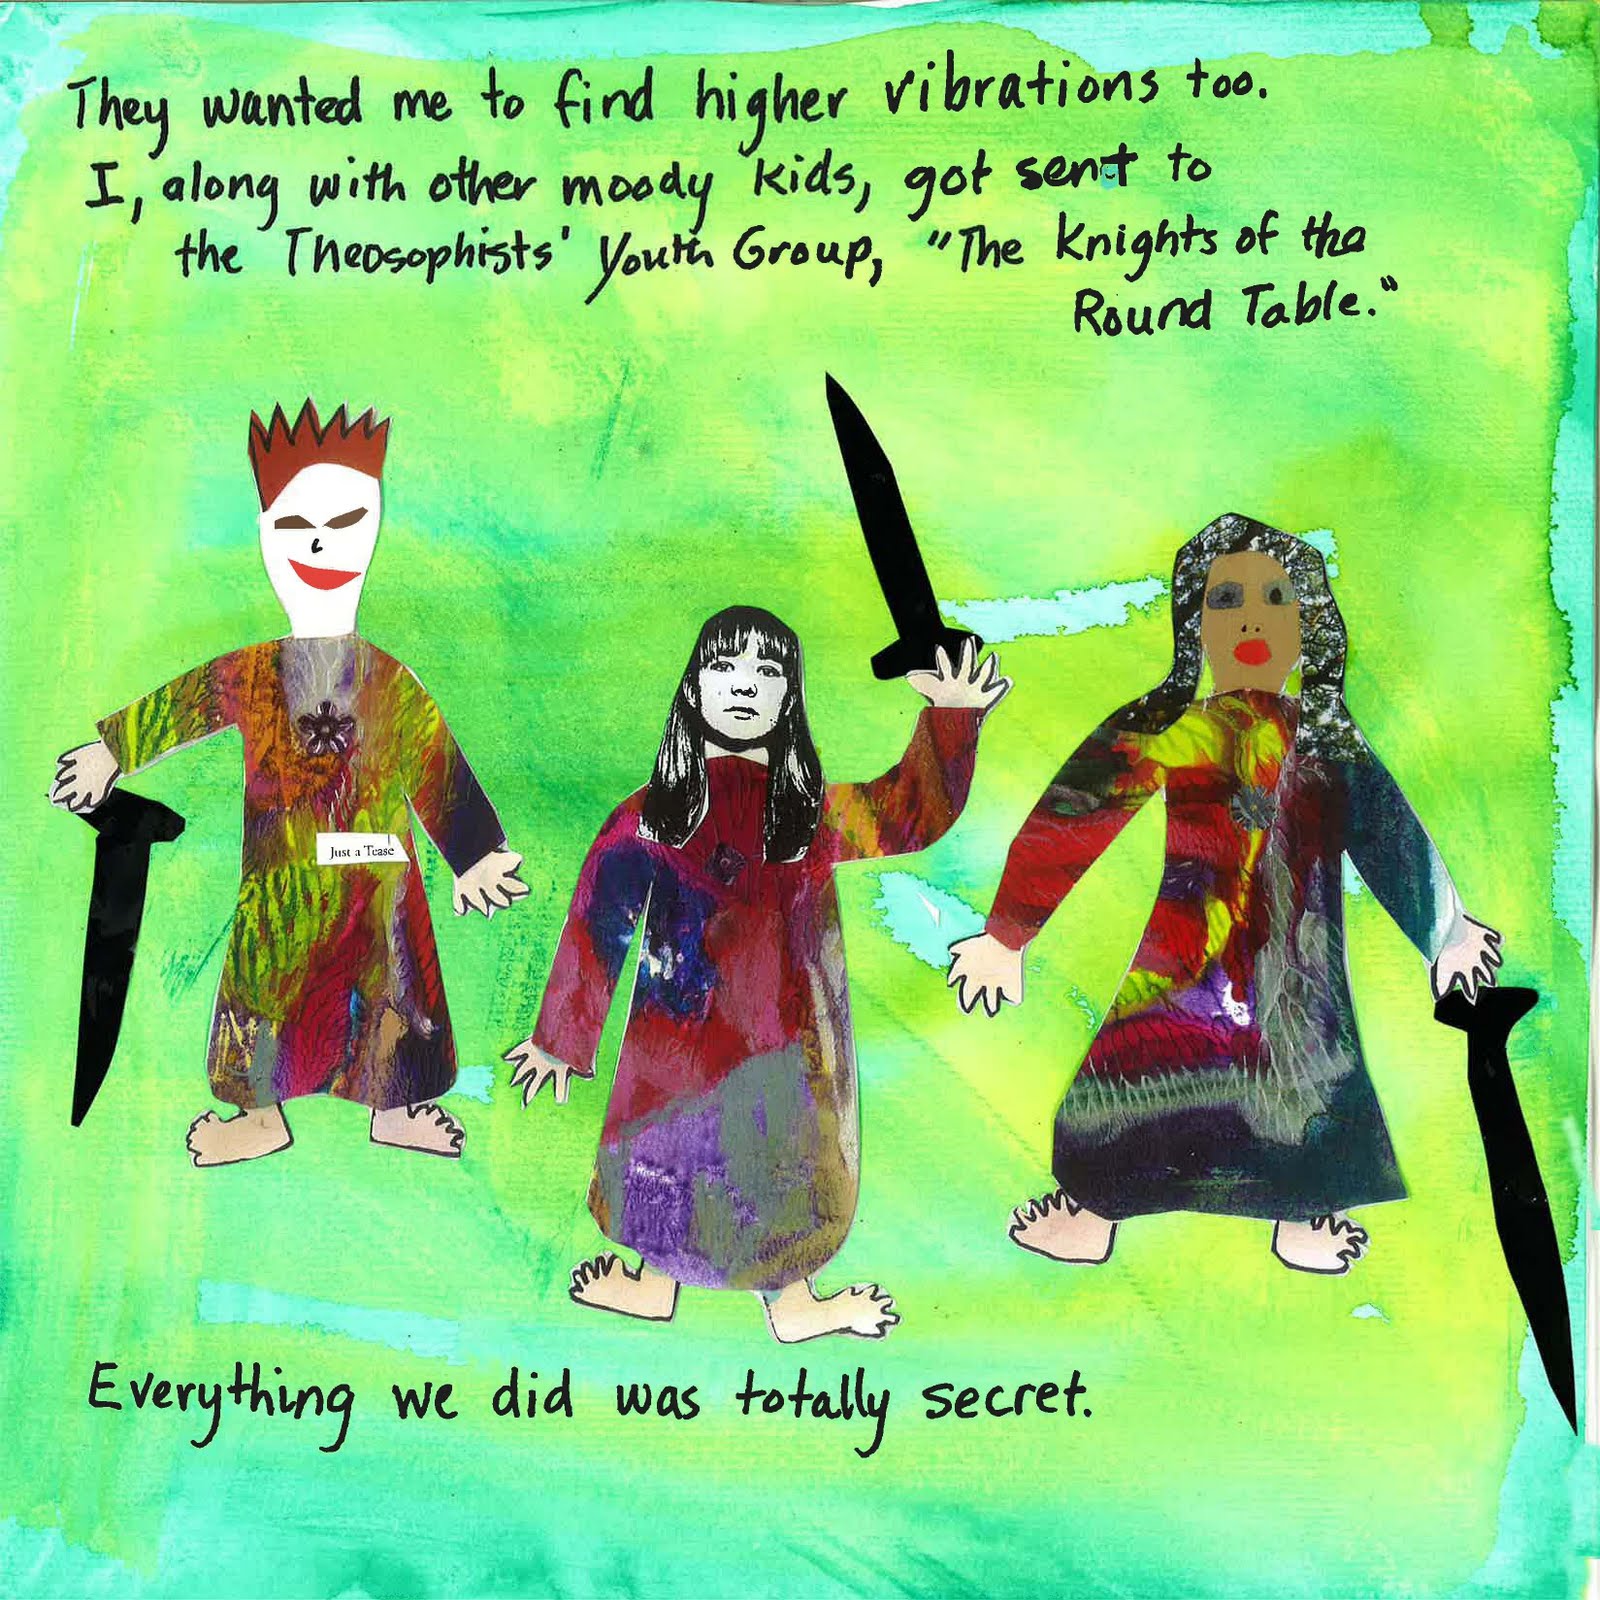 They wanted me to find higher vibrations too.
I, along with other moody kids, got sent to
the Theosophists' Youth Group, "The Knights of the
Round Table."
Just a Tease
Everything we did was totally secret.